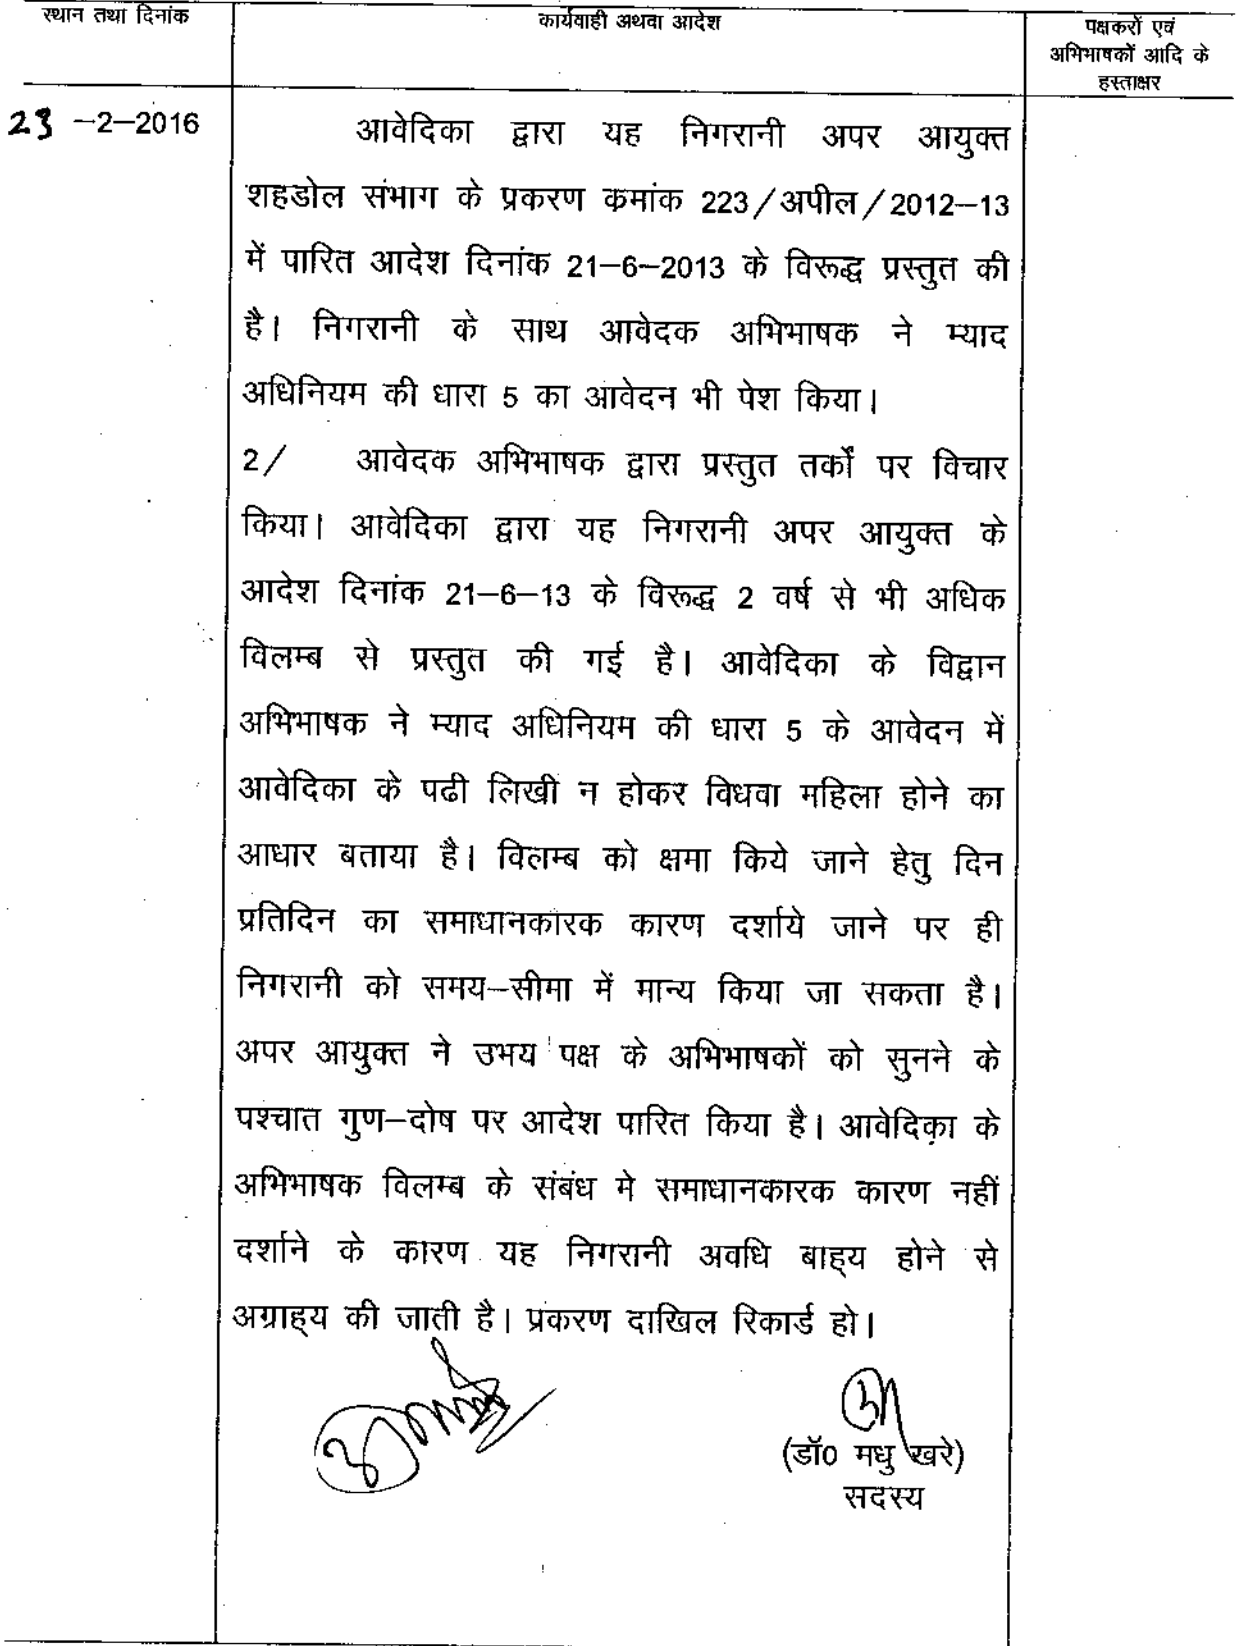 स्थान तथा दिनांक
कार्यवाही अथवा आदेश
पक्षकरों एवं
अभिभाषकों आदि के
हस्ताक्षर
23 –2–2016
आवेदिका द्वारा यह निगरानी अपर आयुक्त
शहडोल संभाग के प्रकरण कमांक 223/अपील/2012–13
में पारित आदेश दिनांक 21–6–2013 के विरूद्ध प्रस्तुत की
है। निगरानी के साथ आवेदक अभिभाषक ने म्याद
अधिनियम की धारा 5 का आवेदन भी पेश किया।
2/ आवेदक अभिभाषक द्वारा प्रस्तुत तर्कों पर विचार
किया। आवेदिका द्वारा यह निगरानी अपर आयुक्त के
आदेश दिनांक 21–6–13 के विरूद्ध 2 वर्ष से भी अधिक
विलम्ब से प्रस्तुत की गई है। आवेदिका के विद्वान
अभिभाषक ने म्याद अधिनियम की धारा 5 के आवेदन में
आवेदिका के पढी लिखी न होकर विधवा महिला होने का
आधार बताया है। विलम्ब को क्षमा किये जाने हेतु दिन
प्रतिदिन का समाधानकारक कारण दर्शाये जाने पर ही
निगरानी को समय–सीमा में मान्य किया जा सकता है।
अपर आयुक्त ने उभय पक्ष के अभिभाषकों को सुनने के
पश्चात गुण–दोष पर आदेश पारित किया है। आवेदिका के
अभिभाषक विलम्ब के संबंध मे समाधानकारक कारण नहीं
दर्शाने के कारण यह निगरानी अवधि बाह्य होने से
अग्राह्य की जाती है। प्रकरण दाखिल रिकार्ड हो।
(डॉ0 मधु खरे)
सदस्य